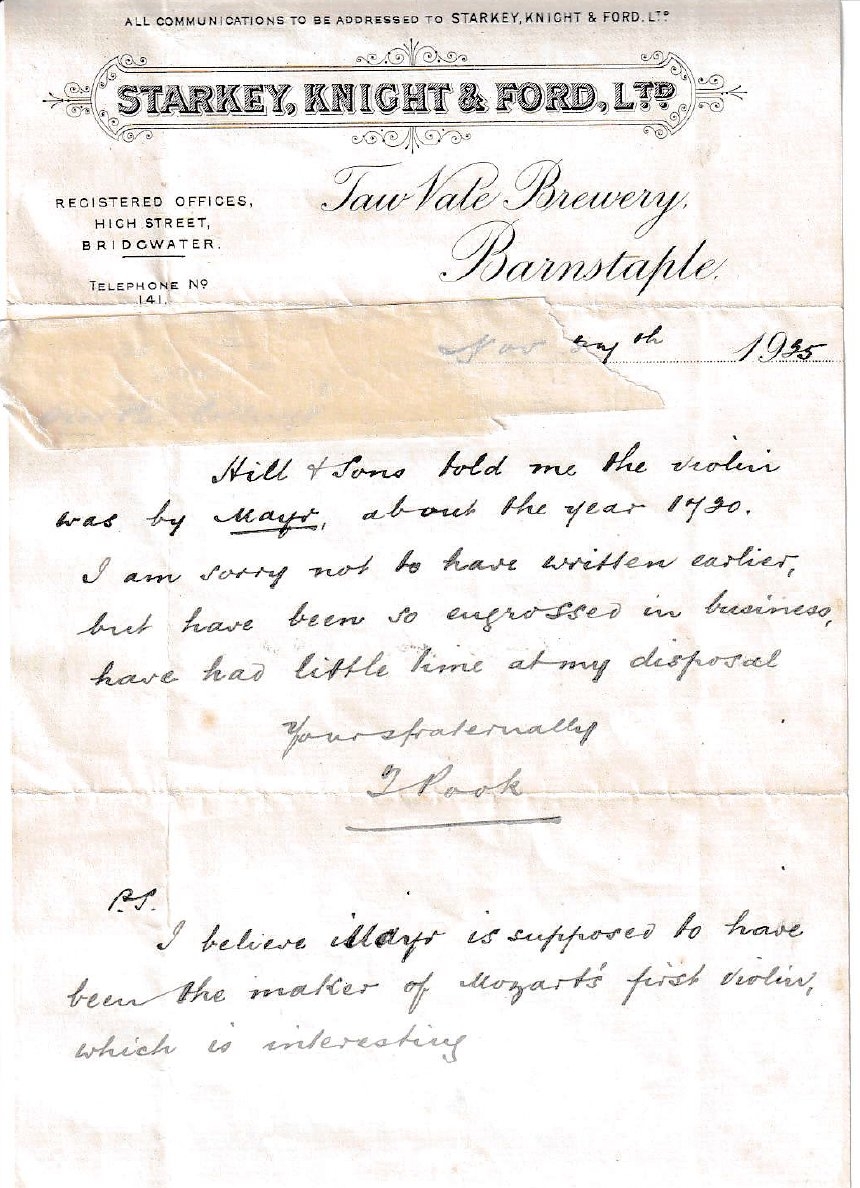 ALL COMMUNICATIONS TO BE ADDRESSED TO STARKEY, KNIGHT & FORD. LTD
STARKEY, KNIGHT & FORD, LTD
Taw Vale Brewery,
Barnstaple.
REGISTERED OFFICES,
HIGH STREET,
BRIDGWATER.
TELEPHONE NO
141.
Nov th 1925
Dear Mr
Hill & Sons told me the violin
was by Mayr, about the year 1720.
I am sorry not to have written earlier,
but have been so engrossed in business,
have had little time at my disposal
Yours fraternally
T Pook
P.S.
I believe Mayr is supposed to have
been the maker of Mozart's first violin,
which is interesting